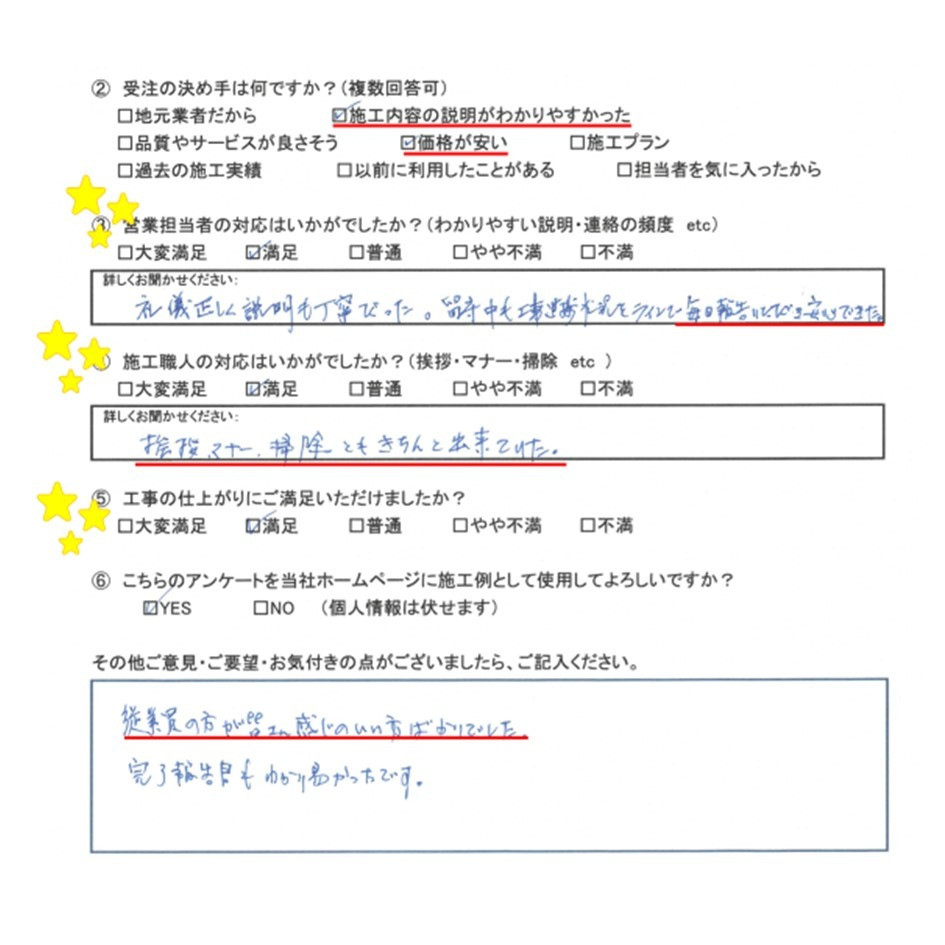 ② 受注の決め手は何ですか？（複数回答可）
□地元業者だから ☑施工内容の説明がわかりやすかった
□品質やサービスが良さそう ☑価格が安い □施工プラン
□過去の施工実績 □以前に利用したことがある □担当者を気に入ったから
③ 営業担当者の対応はいかがでしたか？（わかりやすい説明・連絡の頻度 etc）
□大変満足 ☑満足 □普通 □やや不満 □不満
詳しくお聞かせください：
礼儀正しく説明も丁寧だった。留守中も 進捗状況をラインで毎日報告いただき安心できた。
施工職人の対応はいかがでしたか？（挨拶・マナー・掃除 etc ）
□大変満足 ☑満足 □普通 □やや不満 □不満
詳しくお聞かせください：
挨拶、マナー、掃除ともきちんと出来ていた。
⑤ 工事の仕上がりにご満足いただけましたか？
□大変満足 ☑満足 □普通 □やや不満 □不満
⑥ こちらのアンケートを当社ホームページに施工例として使用してよろしいですか？
☑YES □NO （個人情報は伏せます）
その他ご意見・ご要望・お気付きの点がございましたら、ご記入ください。
従業員の方が皆さん感じのいい方ばかりでした。
完了報告書もわかり易かったです。